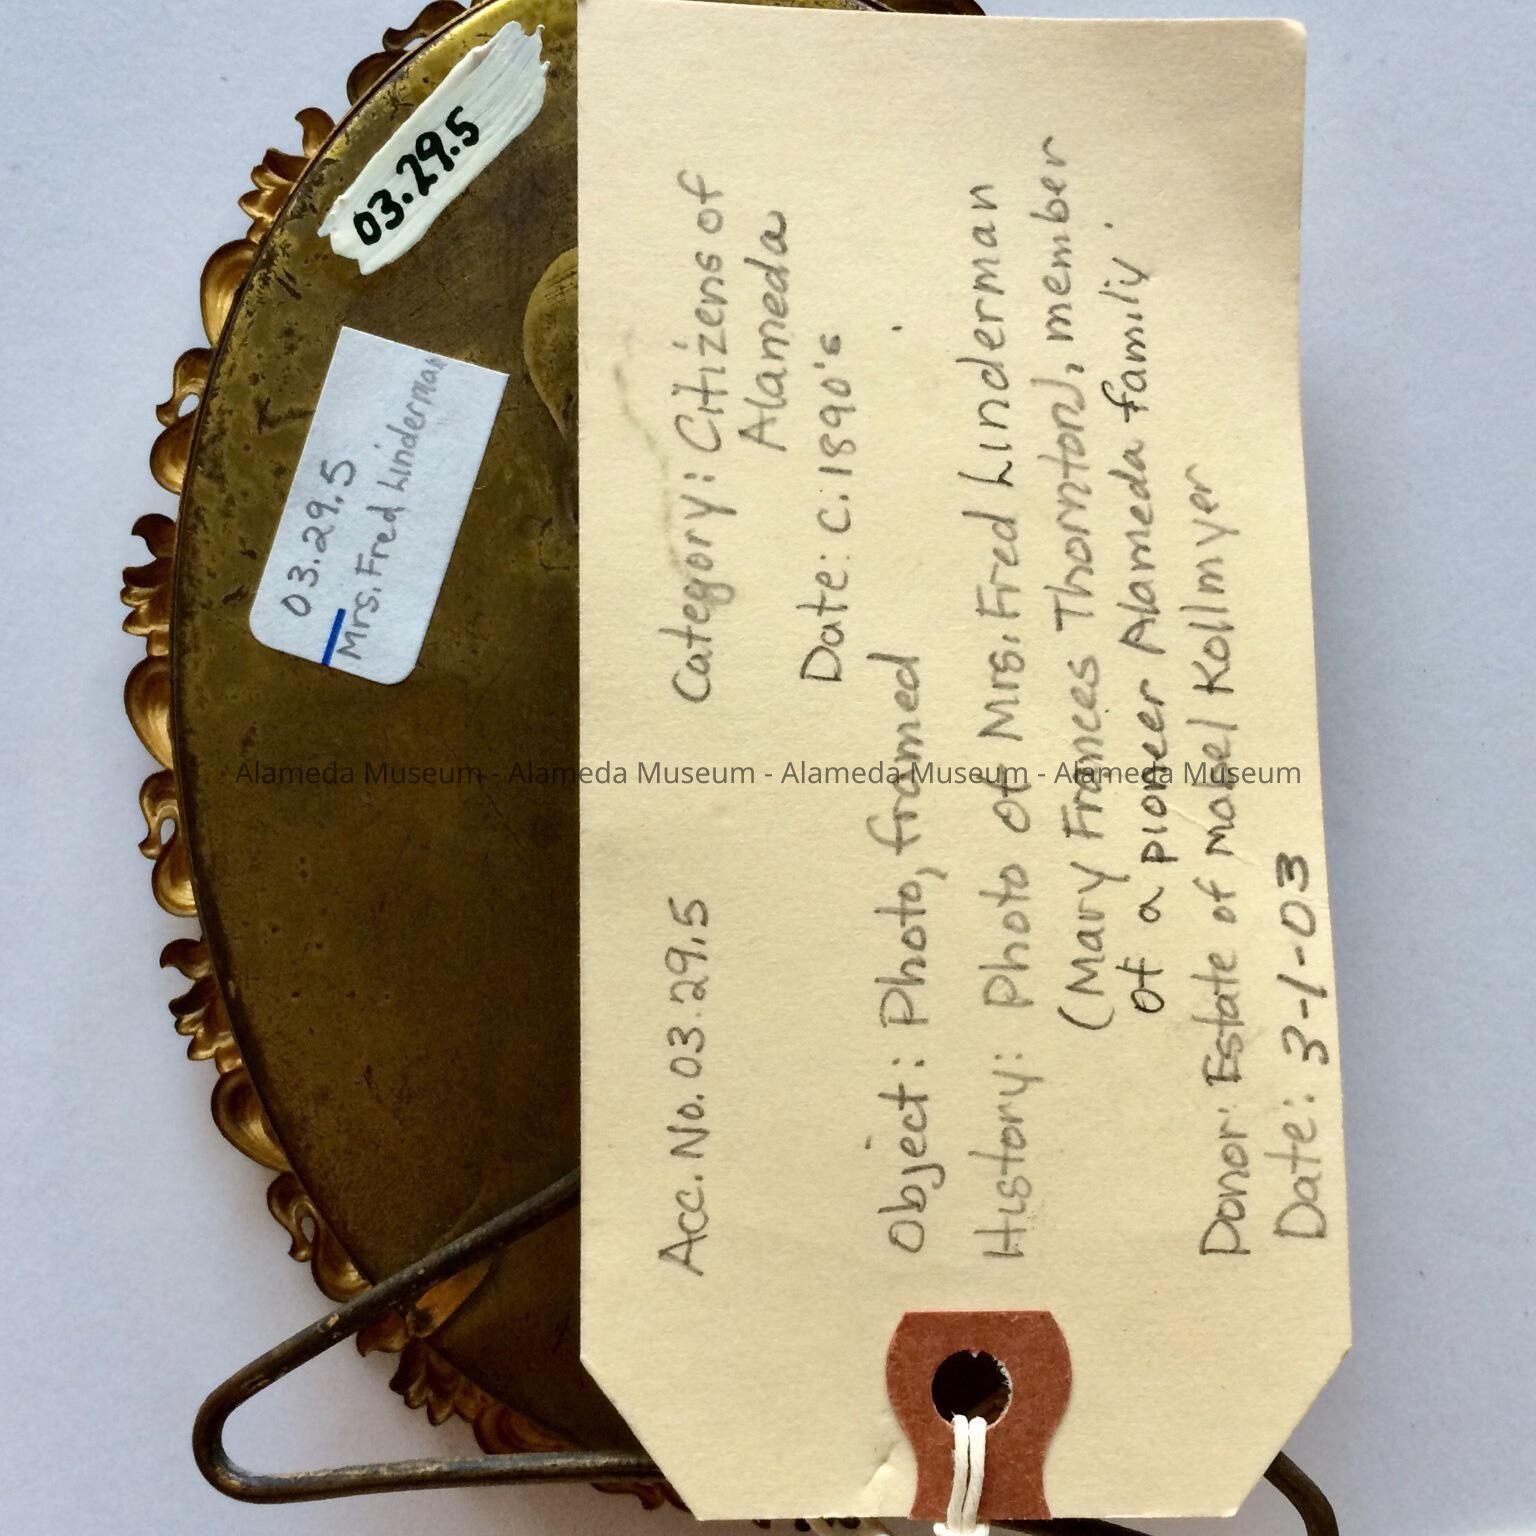 03.29.5
03.29.5
Mrs. Fred Linderman
Acc. No. 03.29.5 Category: Citizens of
Alameda
Date: c. 1890's
Object: Photo, framed
History: Photo of Mrs. Fred Linderman
(Mary Frances Thornton), member
of a pioneer Alameda family.
Donor: Estate of Mabel Kollmyer
Date: 3-1-03
Alameda Museum - Alameda Museum - Alameda Museum - Alameda Museum